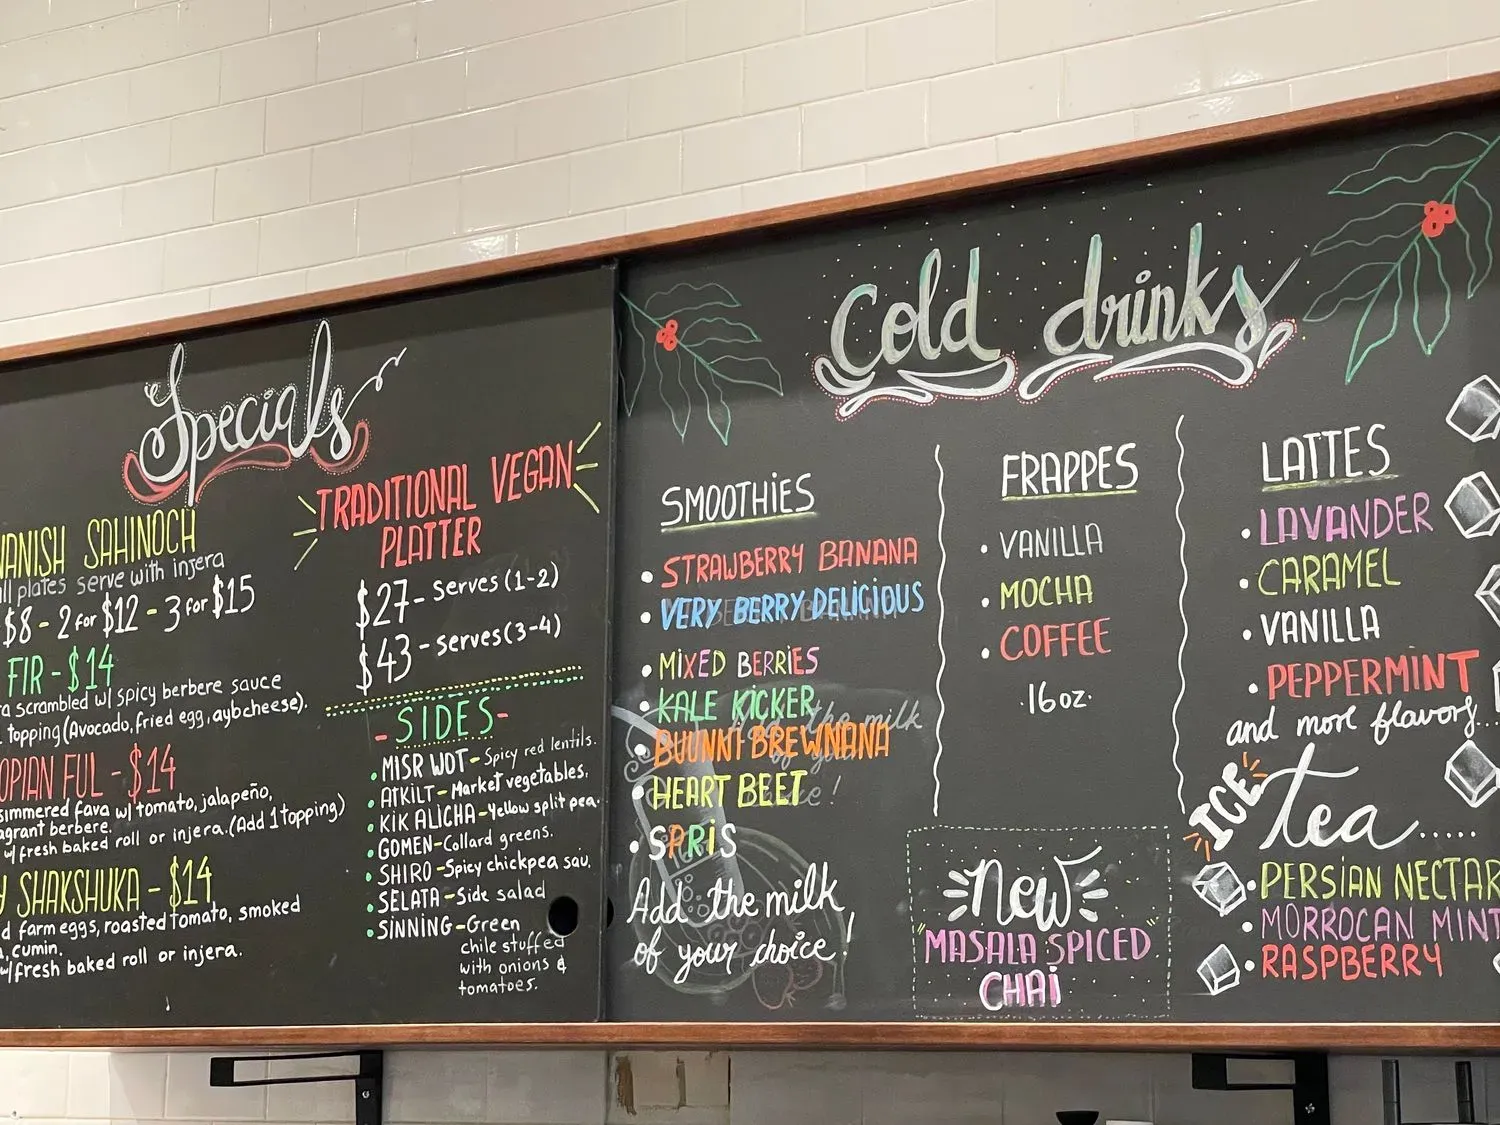 Specials
SAHINOCH
plates serve with injera
$8 - 2 for $12 - 3 for $15
FIR - $14
scrambled w/ spicy berbere sauce
topping (Avocado, fried egg, aybcheese).
FUL - $14
simmered fava w/ tomato, jalapeño,
berbere.
w/ fresh baked roll or injera. (Add 1 topping)
SHAKSHUKA - $14
farm eggs, roasted tomato, smoked
cumin.
w/ fresh baked roll or injera.
TRADITIONAL VEGAN
PLATTER
$27 - serves (1-2)
$43 - serves (3-4)
- SIDES -
• MISR WOT - Spicy red lentils.
• ATKILT - Market vegetables.
• KIK ALICHA - Yellow split pea.
• GOMEN - Collard greens.
• SHIRO - Spicy chickpea sau.
• SELATA - Side salad
• SINNING - Green
chile stuffed
with onions &
tomatoes.
Cold drinks
SMOOTHIES
• STRAWBERRY BANANA
• VERY BERRY DELICIOUS
• MIXED BERRIES
• KALE KICKER
• BUUNNI BREWNANA
• HEART BEET
• SPRIS
Add the milk
of your choice!
FRAPPES
• VANILLA
• MOCHA
• COFFEE
16oz.
new
MASALA SPICED
CHAI
LATTES
• LAVANDER
• CARAMEL
• VANILLA
• PEPPERMINT
and more flavors...
ICE tea.....
• PERSIAN NECTAR
• MORROCAN MINT
• RASPBERRY